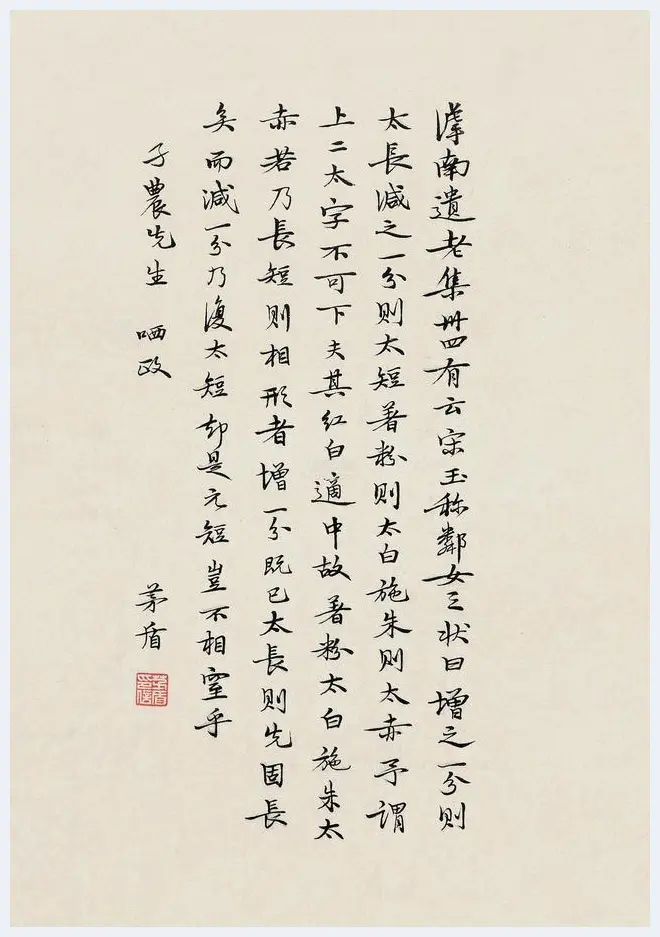 滹南遺老集卅四有云宋玉称鄰女之状曰增之一分则
太長減之一分则太短著粉则太白施朱则太赤予謂
上二太字不可下夫其红白適中故著粉太白施朱太
赤若乃長短则相形者增一分既已太長则先固長
矣而減一分乃復太短却是元短豈不相窒乎
子農先生 哂政
茅盾
茅盾印信